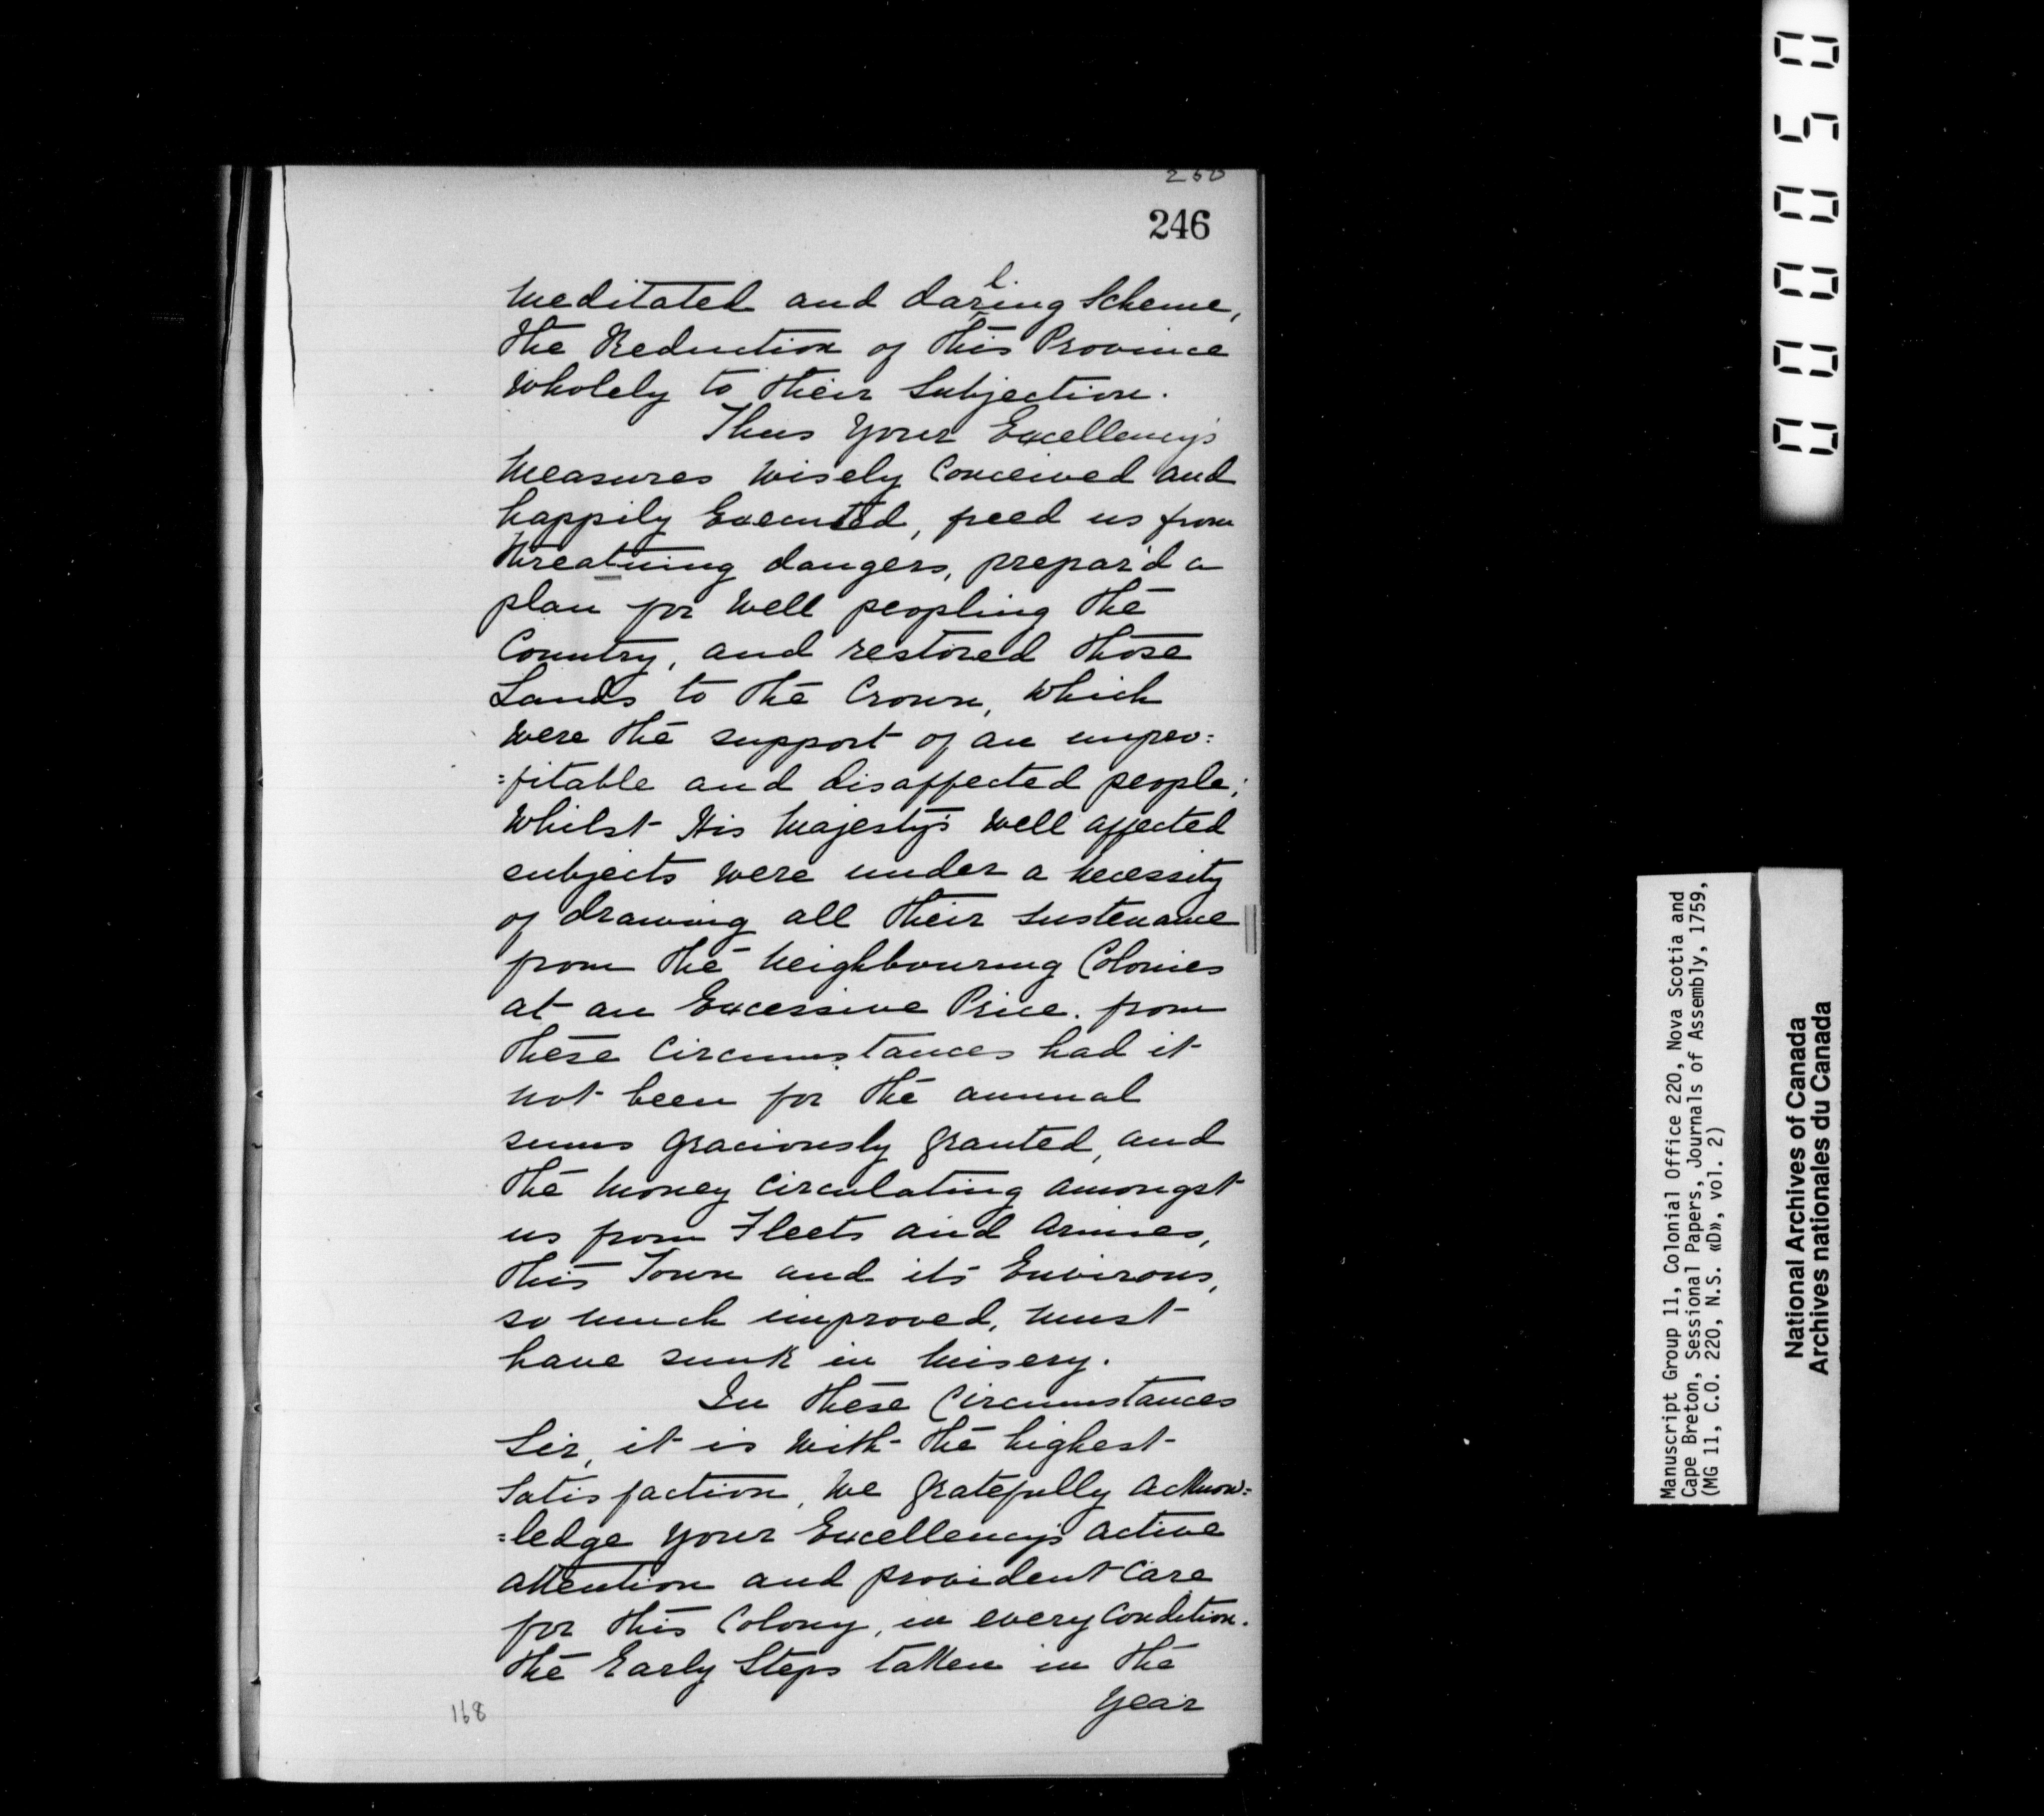 246
meditated and darling Scheme,
the Reduction of this Province
wholely to their Subjection.
Thus Your Excellency's
measures wisely Conceived and
happily Executed, freed us from
threatning dangers, prepar'd a
plan for well peopling the
Country, and restored those
Lands to the Crown, which
were the support of an unpro=
=fitable and disaffected people;
whilst His Majesty's well affected
subjects were under a necessity
of drawing all their sustenance
from the neighbouring Colonies
at an Excessive Price. from
these Circumstances had it
not been for the annual
sums graciously granted, and
the money circulating amongst
us from Fleets and Armies,
this Town and its Environs,
so much improved, must
have sunk in misery.
In these Circumstances
Sir, it is with the highest
Satisfaction, we gratefully acknow=
=ledge your Excellency's active
attention and provident Care
for this Colony, in every Condition.
the Early Steps taken in the
year
168
000050
Manuscript Group 11, Colonial Office 220, Nova Scotia and
Cape Breton, Sessional Papers, Journals of Assembly, 1759,
(MG 11, C.O. 220, N.S. «D», vol. 2)
National Archives of Canada
Archives nationales du Canada